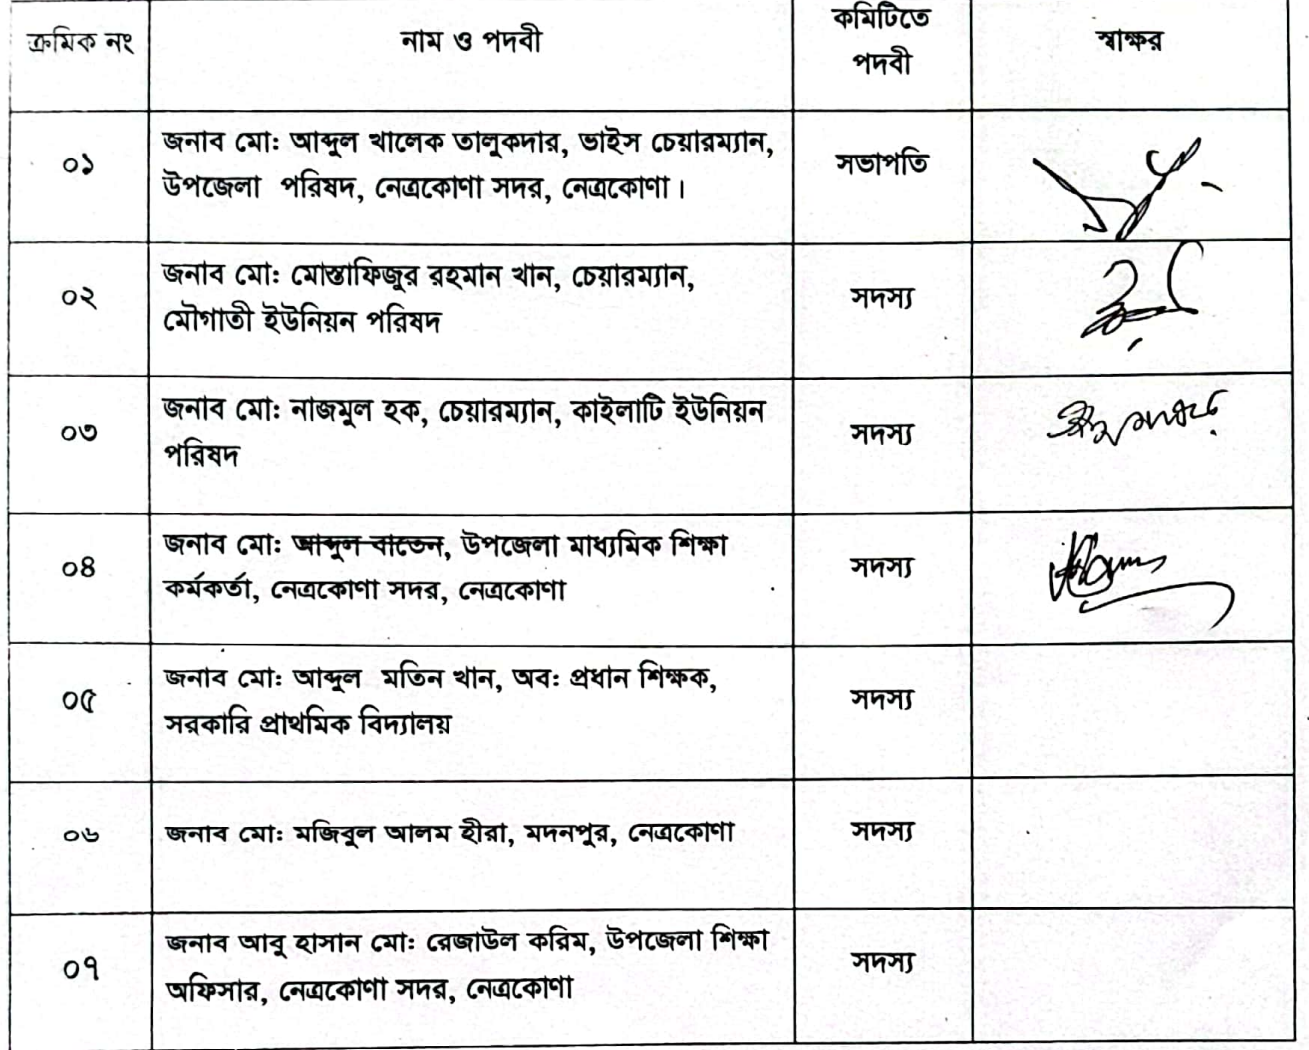 ক্রমিক নং
নাম ও পদবী
কমিটিতে
পদবী
স্বাক্ষর
০১
জনাব মো: আব্দুল খালেক তালুকদার, ভাইস চেয়ারম্যান,
উপজেলা পরিষদ, নেত্রকোণা সদর, নেত্রকোণা।
সভাপতি
০২
জনাব মো: মোস্তাফিজুর রহমান খান, চেয়ারম্যান,
মৌগাতী ইউনিয়ন পরিষদ
সদস্য
০৩
জনাব মো: নাজমুল হক, চেয়ারম্যান, কাইলাটি ইউনিয়ন
পরিষদ
সদস্য
০৪
জনাব মো: আব্দুল বাতেন, উপজেলা মাধ্যমিক শিক্ষা
কর্মকর্তা, নেত্রকোণা সদর, নেত্রকোণা
সদস্য
০৫
জনাব মো: আব্দুল মতিন খান, অব: প্রধান শিক্ষক,
সরকারি প্রাথমিক বিদ্যালয়
সদস্য
০৬
জনাব মো: মজিবুল আলম হীরা, মদনপুর, নেত্রকোণা
সদস্য
০৭
জনাব আবু হাসান মো: রেজাউল করিম, উপজেলা শিক্ষা
অফিসার, নেত্রকোণা সদর, নেত্রকোণা
সদস্য